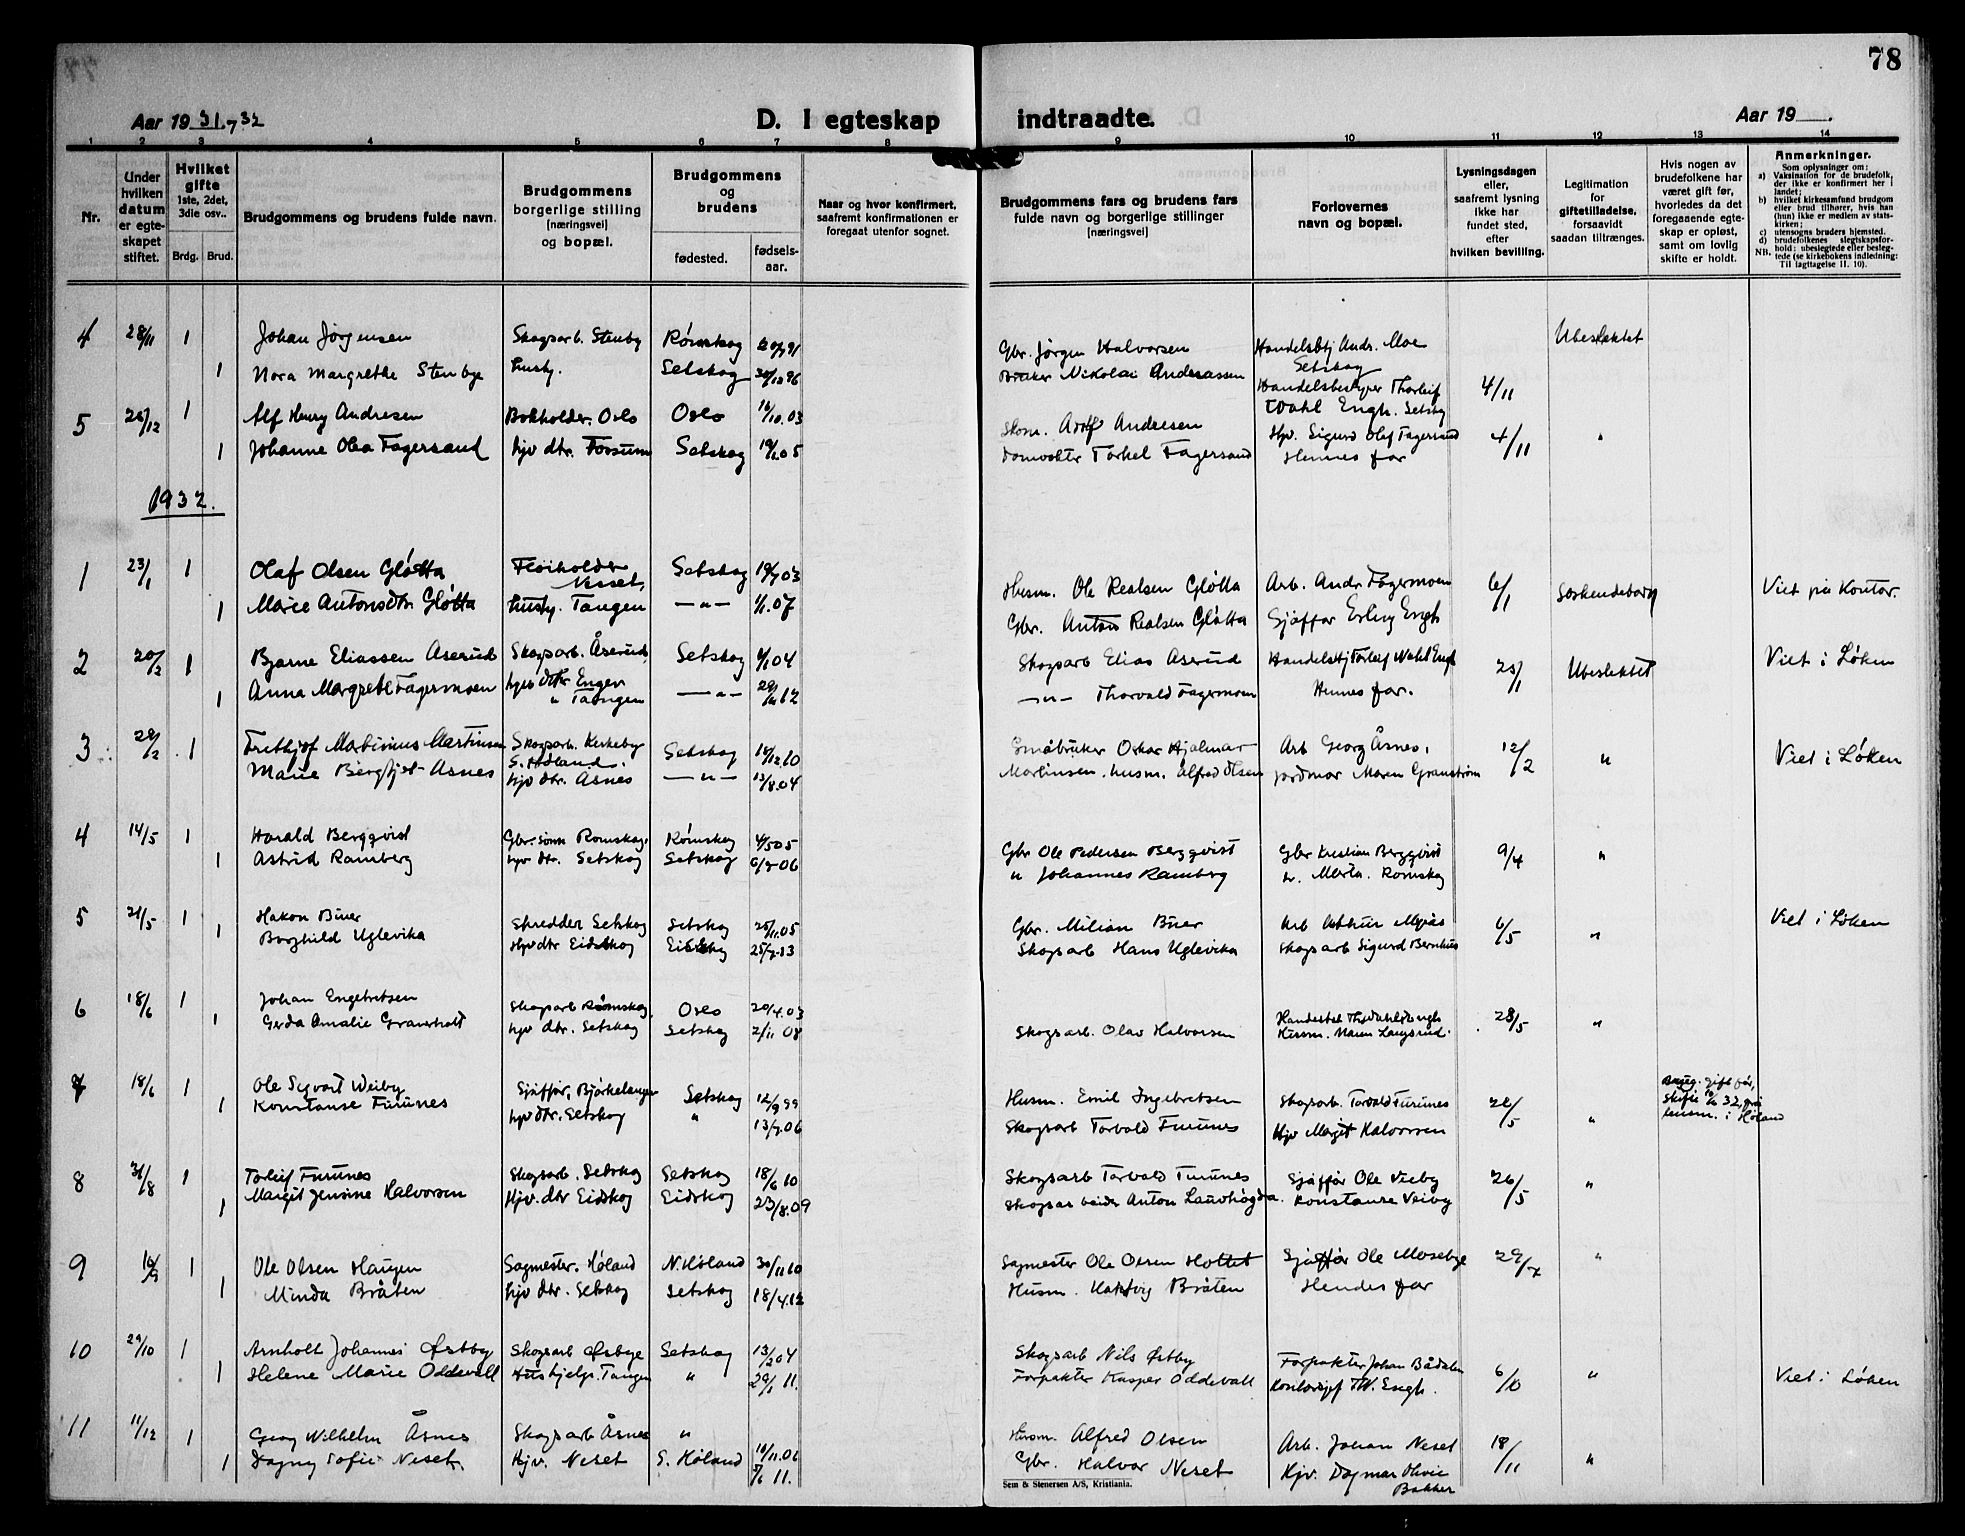 78
Aar 1931-32
D. I egteskap
indtraadte.
Aar 19
1 2 3 4 5 6 7 8 9 10 11 12 13 14
Nr.
Under hvilken datum er egteskapet stiftet.
Hvilket gifte 1ste, 2det, 3die osv..
Brdg. Brud.
Brudgommens og brudens fulde navn.
Brudgommens borgerlige stilling [næringsvei] og bopæl.
Brudgommens og brudens
fødested.
fødselsaar.
Naar og hvor konfirmert, saafremt konfirmationen er foregaat utenfor sognet.
Brudgommens fars og brudens fars fulde navn og borgerlige stillinger [næringsvei]
Forlovernes navn og bopæl.
Lysningsdagen eller, saafremt lysning ikke har fundet sted, efter hvilken bevilling.
Legitimation for giftetilladelse, forsaavidt saadan tiltrænges.
Hvis nogen av brudefolkene har været gift før, hvorledes da det foregaaende egteskap er opløst, samt om lovlig skifte er holdt.
Anmerkninger.
Som oplysninger om:
a) Vaksination for de brudefolk, der ikke er konfirmert her i landet;
b) hvilket kirkesamfund brudgom eller brud tilhører, hvis han (hun) ikke er medlem av statskirken;
c) utensogns bruders hjemsted.
d) brudefolkenes slegtskapsforhold: ubeslegtede eller beslegtede (se kirkebokens indledning:
NB. Til iagttagelse II. 10).
4 28/11 1 Johan Jørgensen Skogsarb. Stenby Rømskog 20/7 91 Gbr. Jørgen Halvorsen Handelsbtj Andr. Moe Setskog 4/11 Ubeslektet
1 Nora Margrethe Stenbye husbj. Setskog 30/12 96 Bruker Nikolai Andreassen Handelsbestyrer Thorleif Wahl Engh. Setskog
5 26/12 1 Alf Henry Andresen Bokholder. Oslo Oslo 16/10.03 Skom. Adolf Andresen Hjv. Sigurd Olaf Fagersand 4/11 "
1 Johanne Olea Fagersand hjv dtr. Fossum Setskog 19/1.05 Damvokter Torkel Fagersand Hennes far
1932.
1 23/1 1 Olaf Olsen Gløtta Neset, Setskog 19/7 03 Husm. Ole Realsen Gløtta Arb. Andr Fagermoen 6/1 Søskendebarn Viet på Kontor.
1 Marie Antonsdtr Gløtta husbj. Tangen —"— 1/1.07 Gbr. Anton Realsen Gløtta Sjåffør Erling Engh
2 20/2 1 Bjarne Eliassen Aserud Skogsarb. Åserud, Setskog 1/1 04 Skogsarb Elias Aserud Handelsbtj Torleif Wahl Engh 25/1 Ubeslektet Viet i Løken
1 Anna Margrethe Fagermoen hjv dtr Enger " Tangen —"— 12 —"— Thorvald Fagermoen Hennes far.
3 28/2 1 Frithjof Martinius Martinsen Skogsarb. Kirkeby S. Høland. Setskog 18/12.10 Småbruker Oskar Hjalmar Arb Georg Åsnes, 12/2 " Viet i Løken
Marie Bergljot Åsnes hjv dtr. Åsnes —"— 13/8.04 Martinsen. husm. Alfred Olsen jordmor Maren Granstrøm
4 14/5 1 Harald Bergqvist Gbr.sønn Romskog. Rømskog 4/5 05 Gbr Ole Pedersen Bergqvist Gbr Kristian Bergqvist 9/4 "
1 Astrid Ramberg hjv dtr. Setskog Setskog 6/7-06 " Johannes Ramberg Marta. Romskog
5 21/5 1 Hakon Buer Skredder Setskog Setskog 25/11.05 Gbr. Milian Buer Arb Arthur 6/5 " Viet i Løken
1 Borghild Uglevika Hjv dtr Eidskog Eidskog 25/7-13 Skogsarb Hans Uglevika Skogsarb Sigurd
6 18/6 1 Johan Engebretsen Skogsarb Rømskog, Oslo 20/4.03 28/5 "
1 Gerda Amalie Graverholt hjv dtr. Setskog Setskog 2/11 08 Skogsarb. Olav Halvorsen Husm. Maren Langsrud.
7 18/6 1 Ole Sigvart Weiby Sjåffør, Bjørkelangen Setskog 12/9 99 Husm. Emil Ingebretsen Skogsarb. Torvald Furunes /5 " gift før, skifte 32, i Høland
1 Konstanse Furunes hjv dtr. Setskog " 13/7.06 Skogsarb Torvald Furunes Hjv Margit Halvorsen
8 31/8 1 Torleif Furunes Skogsarb. Setskog Setskog 18/6 10 Skogsarb Torvald Furunes Sjåffør Ole Veiby 26/5 "
1 Margit Jensine Halvorsen Hjv. dtr Eidskog Eidskog 23/8.09 Skogsarbeider Anton Lauvhøgda. Konstanse Veiby
9 16/9 1 Ole Olsen Haugen Sagmester. Høland N. Høland 30/11 10 Sagmester Ole Olsen Holtet Sjåffør Ole Mosebye 29/7 "
1 Minda Bråten hjv dtr. Setskog Setskog 18/4.12 Husm. Bråten Hendes far
10 29/10 1 Arnholt Johannes Østby Skogsarb Østbye Setskog 13/2 04 Skogsarb Nils Østby Forpakter Johan Bådalen 6/10 " Viet i Løken
1 Helene Marie Oddevall Hushjelp. Tangen " 29/1 11. Forpakter Kasper Oddevall Engh.
11 11/12 1 Georg Wilhelm Åsnes Skogsarb Åsnes " 10/11.06 Husm. Alfred Olsen Arb. Johan Neset 18/11 "
1 Dagny Sofie Neset. Hjv. Neset S. Høland 7/6 11. Gbr. Halvor Neset Hjv. Dagmar Olivie Bakker
Sem & Stenersen A/S, Kristiania.